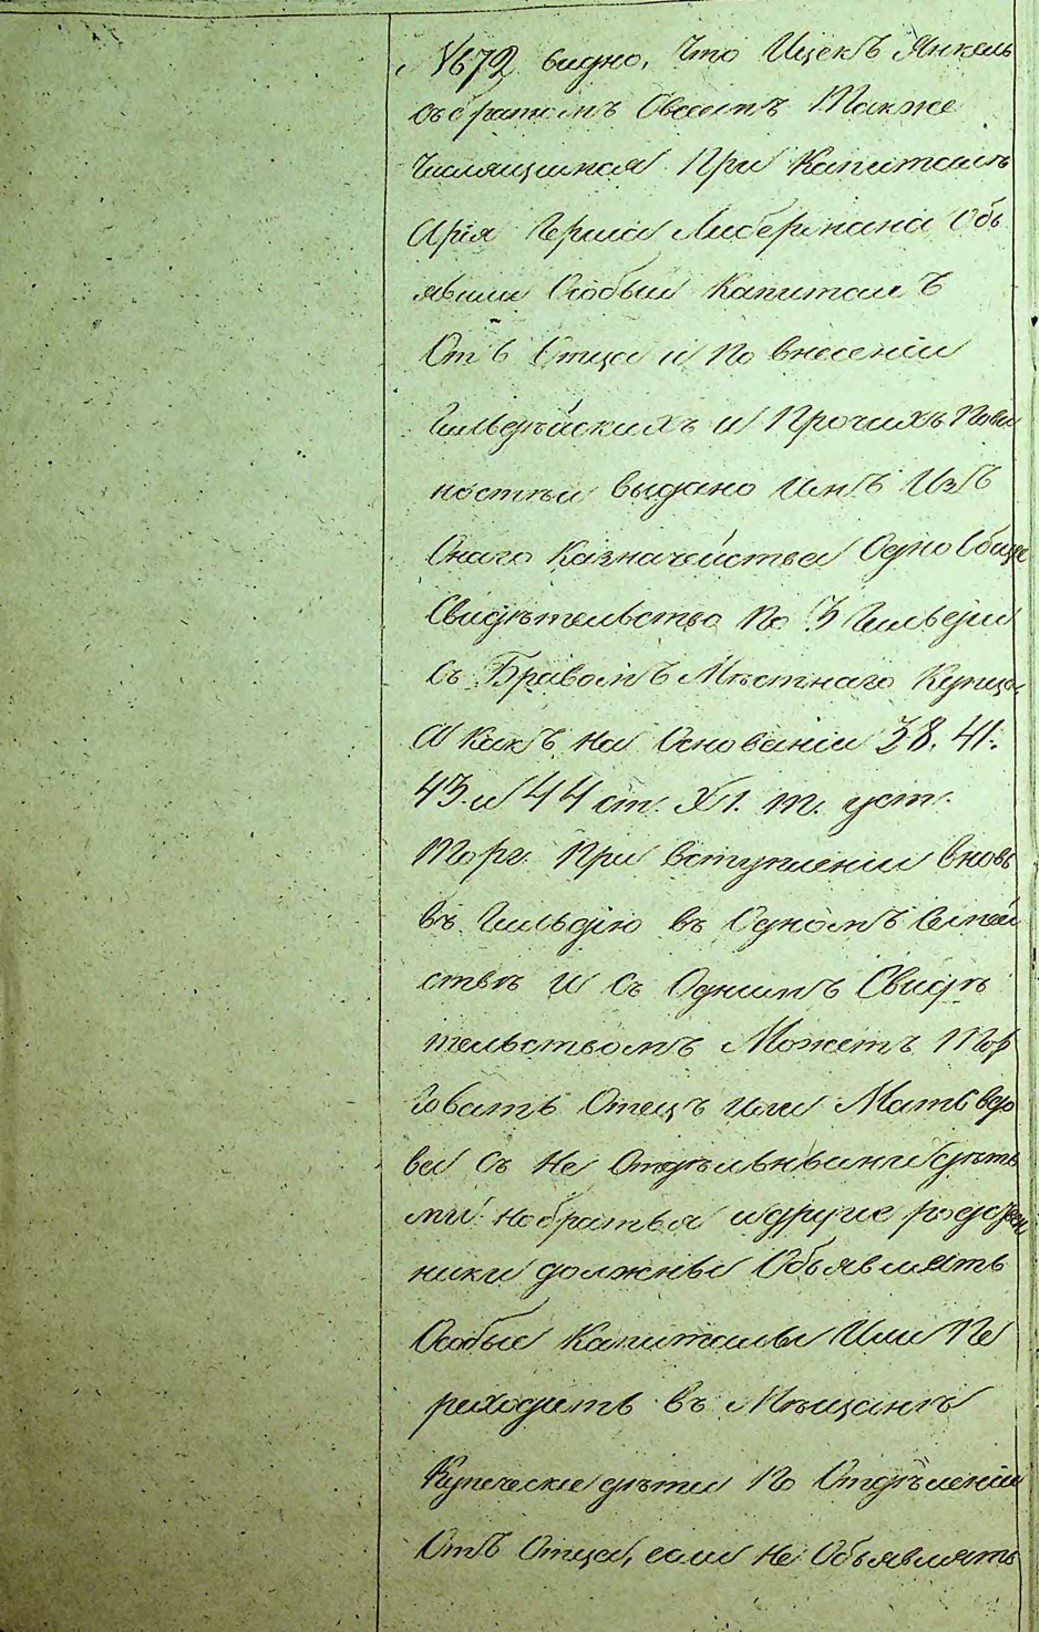 №672 видно, что Ицекъ Янкель
съ братомъ Овсеемъ также
числящимся при капиталѣ
Арія Герша Либермана Объ
явили Особый Капиталъ
Отъ Отца и по внесеніи
Гильдейскихъ и прочихъ пови
ностей выдано имъ изъ
Онаго Казначейства Одно Обще
Свидѣтельство по 3 Гильдіи
съ Правомъ Мѣстнаго Купца,
А какъ на Основаніи 38. 41.
43. и 44 ст. XI. т. уст.
Торг. при вступленіи вновь
въ Гильдію въ Одномъ Семей
ствѣ и съ Однимъ Свидѣ
тельствомъ Можетъ Тор
говать Отецъ или Мать вдо
ва съ не Отдѣльными дѣть
ми но братья и другіе родствен
ники должны Объявлять
Особые Капиталы Или Пе
реходить въ Мѣщане
Купеческіе дѣти по Отдѣленіи
Отъ Отца, если не Объявлять